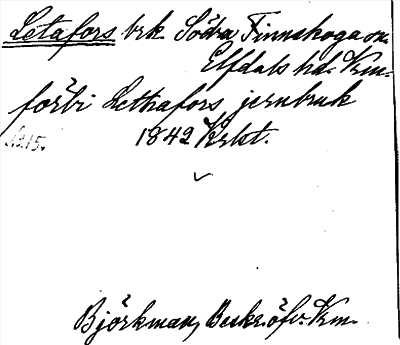 Letafors brk. Södra Finnskoga sn.
Elfdals hd. Vrm.
förbi Lethafors jernbruk
1842 Krkt.
Björkman, Beskr. öfv. Vrm.